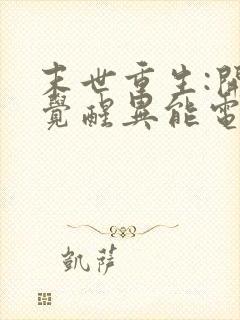 末世重生:開
覺醒異能電
凱薩